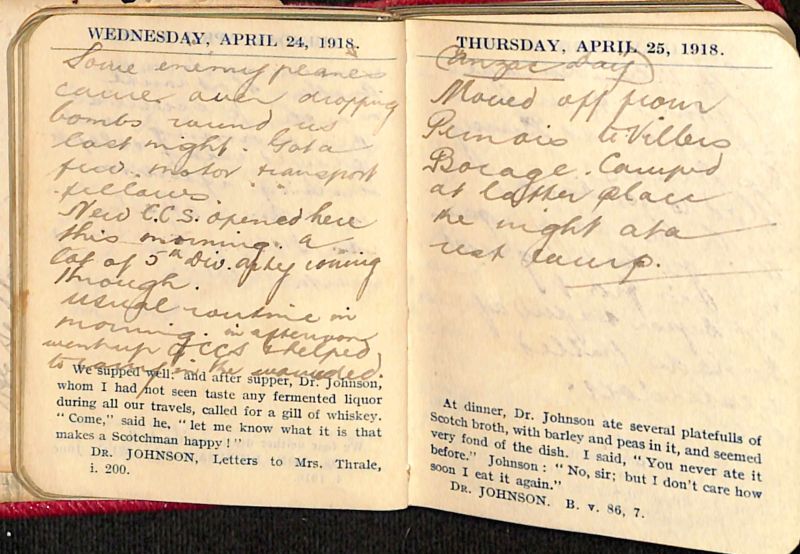 WEDNESDAY, APRIL 24, 1918.
Some enemy planes
came over dropping
bombs round us
last night. Got a
few motor transport
fellows.
New C.C.S. opened here
this morning. a
lot of 5th Div. arty coming
through.
usual routine in
morning. in afternoon
went up to CCS & helped
to carry in the wounded.
We supped well: and after supper, Dr. Johnson,
whom I had not seen taste any fermented liquor
during all our travels, called for a gill of whiskey.
"Come," said he, "let me know what it is that
makes a Scotchman happy!"
DR. JOHNSON, Letters to Mrs. Thrale,
i. 200.
THURSDAY, APRIL 25, 1918.
(Anzac Day)
Moved off from
Pernois to Villers
Bocage. Camped
at latter place
the night at a
rest camp.
At dinner, Dr. Johnson ate several platefulls of
Scotch broth, with barley and peas in it, and seemed
very fond of the dish. I said, "You never ate it
before." Johnson: "No, sir; but I don't care how
soon I eat it again."
DR. JOHNSON. B. v. 86, 7.